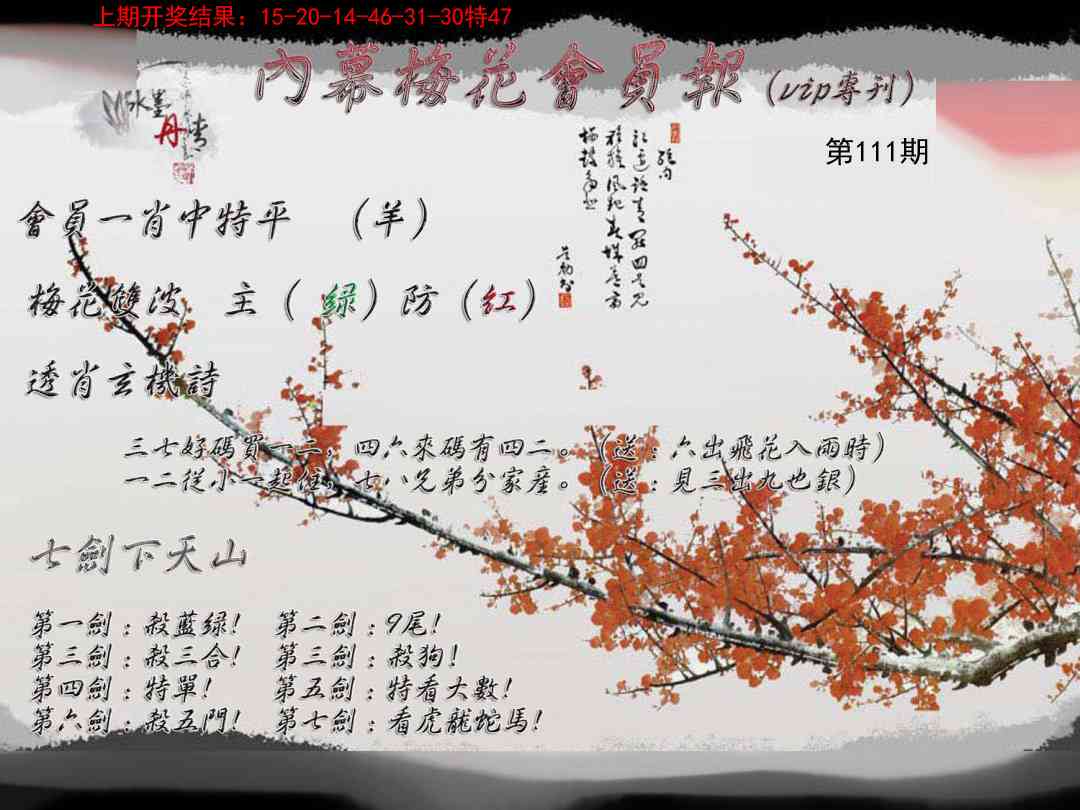 上期开奖结果：15-20-14-46-31-30特47
內幕梅花會員報（vip專刊）
水墨
丹青
第111期
會員一肖中特平　（羊）
梅花雙波　主（綠）防（紅）
透肖玄機詩
三七好碼買一二，四六來碼有四二。（送：六出飛花入兩時）
一二從小一起住，七八兄弟分家產。（送：見三出九也銀）
七劍下天山
第一劍：殺藍綠！　第二劍：9尾！
第三劍：殺三合！　第三劍：殺狗！
第四劍：特單！　第五劍：特看大數！
第六劍：殺五門！　第七劍：看虎龍蛇馬！